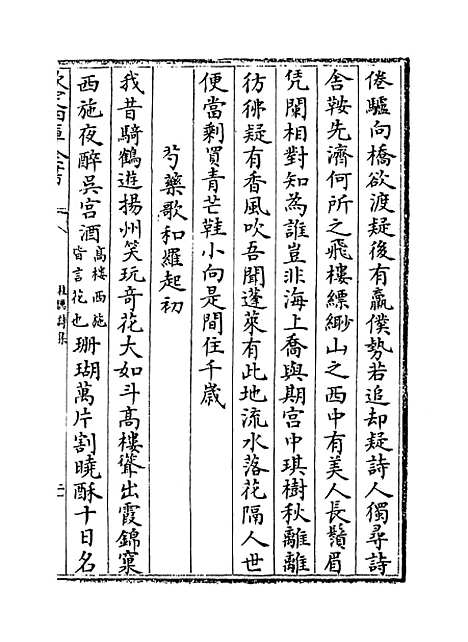 倦驢向橋欲渡疑後有羸僕勢若追却疑詩人獨尋詩
舍鞍先濟何所之飛樓縹緲山之西中有美人長鬚眉
凭闌相對知為誰豈非海上喬與期宫中琪樹秋離離
彷彿疑有香風吹吾聞蓬萊有此地流水落花隔人世
便當剩買青芒鞋小向是間住千歳
芍藥歌和羅起初
我昔騎鶴遊揚州笑玩竒花大如斗髙樓聳出霞錦窠
西施夜醉吳宫酒髙樓西施皆言花也珊瑚萬片割曉酥十日名